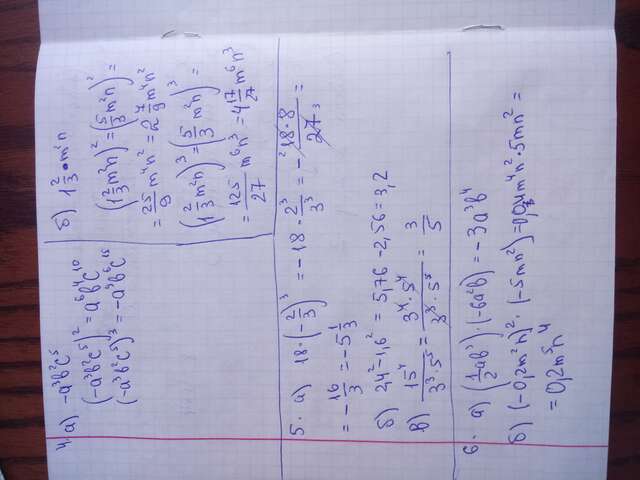 4. а) -a³b²c⁵
(-a³b²c⁵)² = a⁶b⁴c¹⁰
(-a³b²c⁵)³ = -a⁹b⁶c¹⁵
б) 1 2/3 · m²n
(1 2/3 m²n)² = (5/3 m²n)² =
= 25/9 m⁴n² = 2 7/9 m⁴n²
(1 2/3 m²n)³ = (5/3 m²n)³ =
= 125/27 m⁶n³ = 4 17/27 m⁶n³
5. а) 18·(-2/3)³ = -18 · 2³/3³ = - 18·8/27 =
= -16/3 = -5 1/3
б) 2,4² - 1,6² = 5,76 - 2,56 = 3,2
в) 15⁴/3³·5⁵ = 3⁴·5⁴/3³·5⁵ = 3/5
6. а) (1/2 ab)·(-6a²b³) = -3a³b⁴
б) (-0,2m²n)²·(-5mn²) = 0,04m⁴n²·5mn² =
= 0,2m⁵n⁴